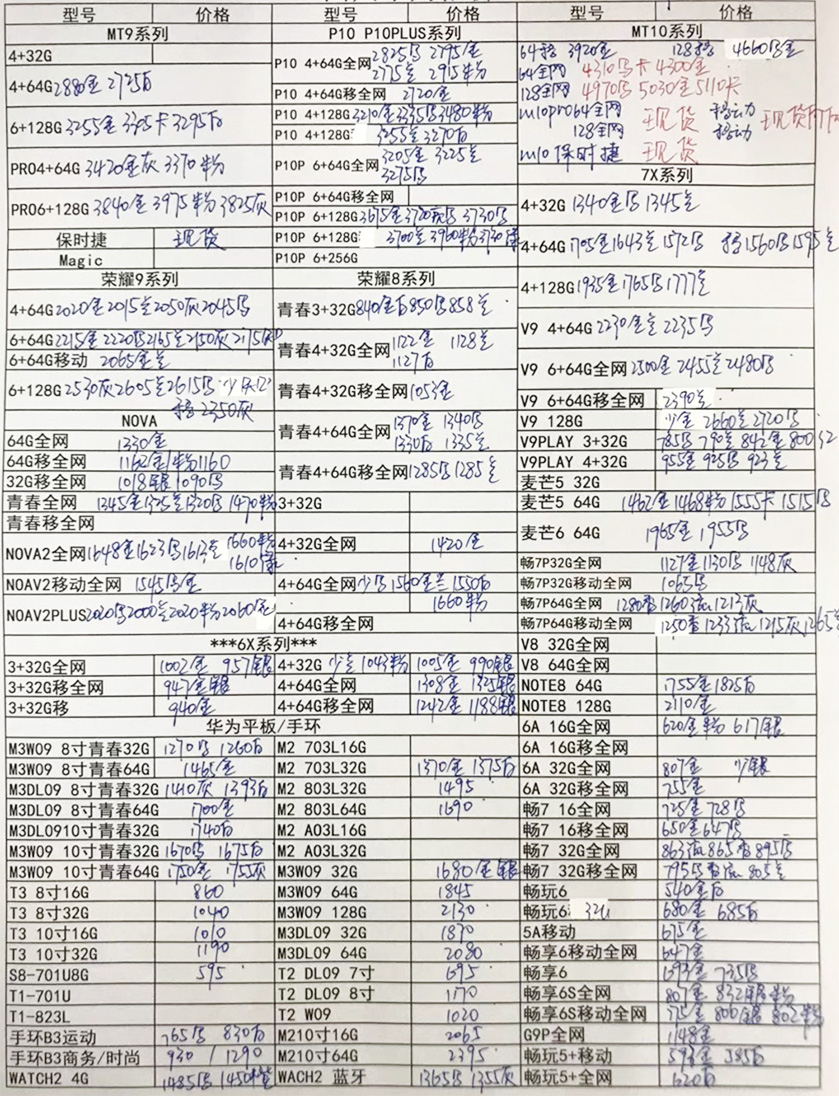 型号 价格
MT9系列
4+32G
4+64G 2880金 2725白
6+128G 3255金 3295白
PRO4+64G 3420金灰 3370粉
PRO6+128G 3840金 3975粉 3825灰
保时捷 现货
Magic
荣耀9系列
4+64G 2020金 2015兰 2050灰 2045马
6+64G 2215金 2220马 2165兰 2150灰
6+64G移动 2065金兰
6+128G 2530灰 2605兰 2615马
2350灰
NOVA
64G全网 1330金
64G移全网 1162金 粉1160
32G移全网 1018银 1090马
青春全网 1345金 1325兰 1320马 1470粉
青春移全网
NOVA2全网 1648金 1623马 1613兰 1660粉
1610
NOAV2移动全网 1545马金
NOAV2PLUS 2020马 2000兰 2020粉 2060
型号 价格
P10 P10PLUS系列
P10 4+64G全网 2825马 2795金
2775兰 2915粉
P10 4+64G移全网 2720金
P10 4+128G 3210金 3335马 3480粉
P10 4+128G 3255兰 3270白
P10P 6+64G全网 3205金 3225兰
3275马
P10P 6+64G移全网
P10P 6+128G 3675金 3720灰马 3730马
P10P 6+128G 3700金 3960粉
P10P 6+256G
荣耀8系列
青春3+32G 840金白 850马 858兰
青春4+32G全网 1122金 1128兰
1127白
青春4+32G移全网 1053金
青春4+64G全网 1370金 1340马
1330白 1335兰
青春4+64G移全网 1285马 1285兰
3+32G
4+32G全网 1420金
4+64G全网 少马 1560金兰 1550白
1660粉
4+64G移全网
型号 价格
MT10系列
64移 3920金 128移 4660马金
64全网 4310马卡 4300金
128全网 4970马 5030金 5110卡
m10pro64全网 现货 移动 现货
128全网 移动
m10保时捷 现货
7X系列
4+32G 1340金马 1345兰
4+64G 1705金 1643兰 1572马 移1560马 1595兰
4+128G 1935金 1765马 1777兰
V9 4+64G 2230金兰 2235马
V9 6+64G全网 2500金 2455兰 2480马
V9 6+64G移全网 2390兰
V9 128G 少金 2660兰 2720马
V9PLAY 3+32G 785马 790兰 842金
V9PLAY 4+32G 955金 925马 923兰
麦芒5 32G
麦芒5 64G 1462金 1468粉 1555卡 1515马
麦芒6 64G 1965金 1955马
畅7P32G全网 1127金 1130马 1148灰
畅7P32G移动全网 1065马
畅7P64G全网 1280香 1260 1213灰
畅7P64G移动全网 1250香 1233 1215灰 1265
***6X系列***
3+32G全网 1002金 957银
3+32G移全网 947金银
3+32G移 940金
4+32G 少兰 1043粉 1005金 990银
4+64G全网 1308金 1325银
4+64G移全网 1242金 1188银
华为平板/手环
M3W09 8寸青春32G 1270马 1260白
M3W09 8寸青春64G 1465金
M3DL09 8寸青春32G 1410灰 1393白
M3DL09 8寸青春64G 1700金
M3DL0910寸青春32G 1740白
M3W09 10寸青春32G 1670马 1675白
M3W09 10寸青春64G 1750金 1755灰
T3 8寸16G 860
T3 8寸32G 1040
T3 10寸16G 1010
T3 10寸32G 1190
S8-701U8G 595
T1-701U
T1-823L
手环B3运动 765马 830白
手环B3商务/时尚 930 / 1290
WATCH2 4G 1485马 1450橙
M2 703L16G
M2 703L32G 1370金 1375白
M2 803L32G 1495
M2 803L64G 1690
M2 A03L16G
M2 A03L32G
M3W09 32G 1680金银
M3W09 64G 1845
M3W09 128G 2130
M3DL09 32G 1870
M3DL09 64G 2080
T2 DL09 7寸 695
T2 DL09 8寸 1170
T2 W09 1020
M210寸16G 2065
M210寸64G 2395
WACH2 蓝牙 1365马 1355灰
V8 32G全网
V8 64G全网
NOTE8 64G 1755金 1825白
NOTE8 128G 2110金
6A 16G全网 620金粉 617银
6A 16G移全网
6A 32G全网 807金 少银
6A 32G移全网 755金
畅7 16G全网 725金 728马
畅7 16G移全网 650金 647马
畅7 32G全网 863 865香 895马
畅7 32G移全网 795马 805兰
畅玩6 540金白
畅玩6 32G 680金 685白
5A移动 675金
畅享6移动全网 647金
畅享6 693金 735马
畅享6S全网 807金 832银粉
畅享6S移动全网 775金 800金银 802粉
G9P全网 1148金
畅玩5+移动 593金 585白
畅玩5+全网 620白